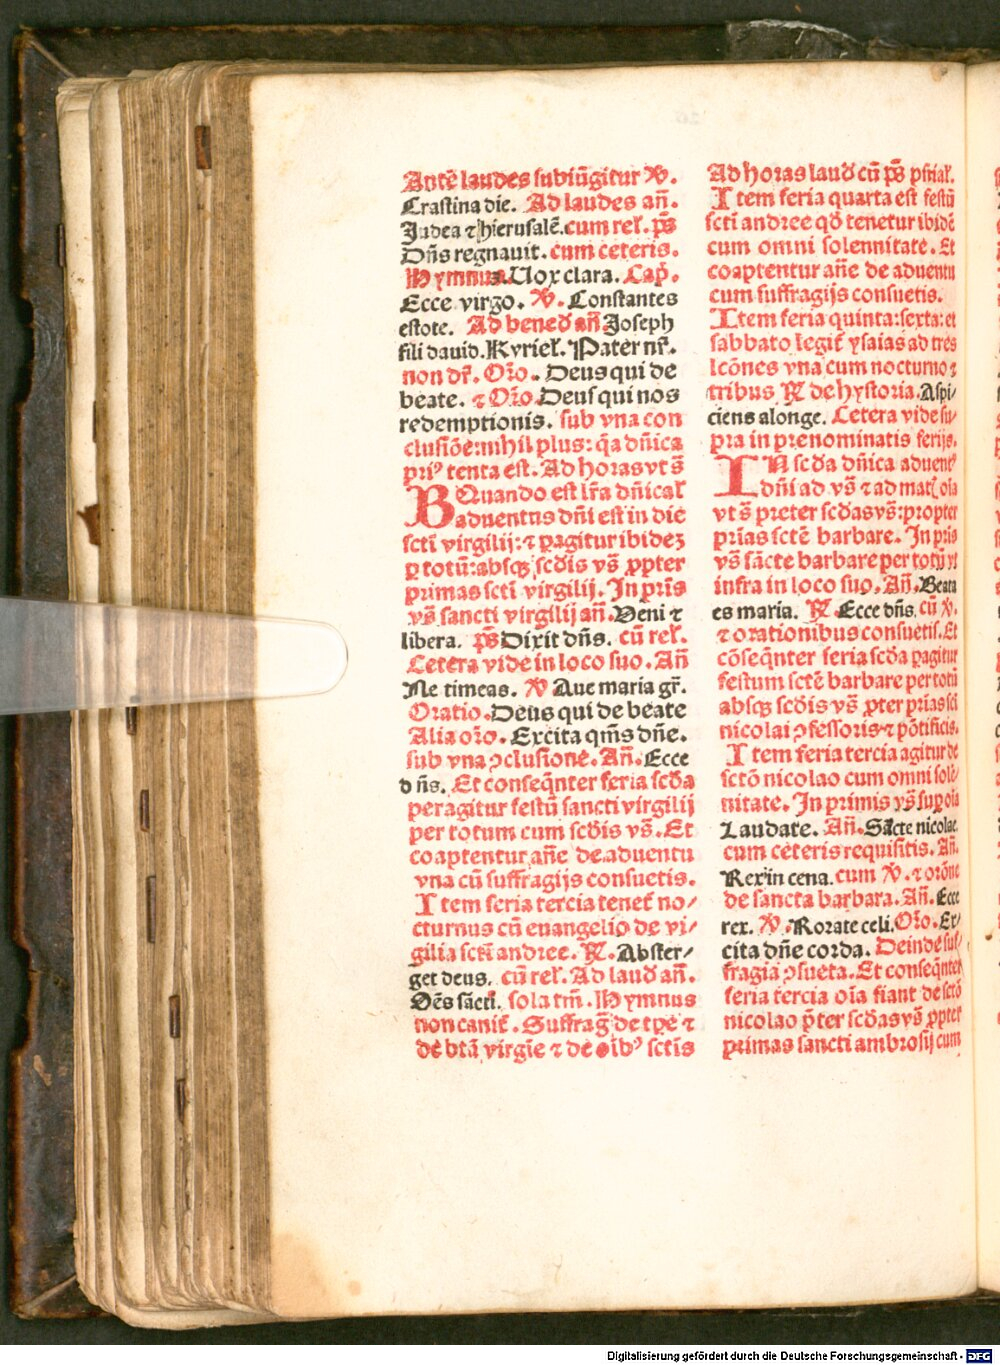 Antē laudes subiūgitur ℣.
Crastina die. Ad laudes añ.
Judea ⁊ hierusalē. cum rel̄. ps̄
Dn̄s regnauit. cum ceteris.
Hymnus Uox clara. Cap̄.
Ecce virgo. ℣. Constantes
estote. Ad bened̄ añ. Joseph
fili dauid. Kyriel̄. Pater nr̄.
non dr̄. Orō. Deus qui de
beate. ⁊ Orō. Deus qui nos
redemptionis. sub vna con
clusiōe: nihil plus: q̄a dn̄ica
pri⁹ tenta est. Ad horas vt s̄
B Quando est lr̄a dn̄ical̄
aduentus dn̄i est in die
scti virgilij: ⁊ ꝑagitur ibidez
ꝑ totū: absqꝫ scd̄is vs̄ ꝓpter
primas scti virgilij. In pris̄
vs̄ sancti virgilij añ. Veni ⁊
libera. ps̄ Dixit dn̄s. cū rel̄.
Cetera vide in loco suo. Añ
Ne timeas. ℣ Aue maria gr̄.
Oratio. Deus qui de beate
Alia orō. Excita qm̄s dn̄e.
sub vna ↄclusione. Añ. Ecce
dn̄s. Et conseq̄nter feria scd̄a
peragitur festū sancti virgilij
per totum cum scd̄is vs̄. Et
coaptentur añe de aduentu
vna cū suffragijs consuetis.
Item feria tercia tenet̄ no/
cturnus cū euangelio de vi/
gilia scti andree. ℟. Abster/
get deus. cū rel̄. Ad laud̄ añ.
Oēs sācti. sola tm̄. Hymnus
non canit̄. Suffraḡ de tp̄e ⁊
de btā virgīe ⁊ de oib⁹ sctis
Ad horas laud̄ cū ps̄ pn̄ial̄.
Item feria quarta est festū
scti andree qd̄ tenetur ibidē
cum omni solennitate. Et
coaptentur añe de aduentu
cum suffragijs consuetis.
Item feria quinta: sexta: et
sabbato legit̄ ysaias ad tres
lcōnes vna cum nocturno ⁊
tribus ℟ de hystoria. Aspi/
ciens a longe. Cetera vide su/
pra in prenominatis ferijs.
IN scd̄a dn̄ica aduent⁹
dn̄i ad vs̄ ⁊ ad mat̄ oīa
vt s̄ preter scd̄as vs̄: propter
prias sctē barbare. In pris̄
vs̄ sācte barbare per totū vt
infra in loco suo. Añ. Beata
es maria. ℟. Ecce dn̄s. cū ℣.
⁊ orationibus consuetis. Et
cōseq̄nter feria scd̄a ꝑagitur
festum sctē barbare per totū
absqꝫ scd̄is vs̄ ꝓter prias sci
nicolai ↄfessoris ⁊ pōtificis.
Item feria tercia agitur de
sctō nicolao cum omni solē/
nitate. In primis vs̄ sup oīa
Laudate. Añ. Sācte nicolae.
cum ceteris requisitis. Añ.
Rex in cena. cum ℣. ⁊ orōne
de sancta barbara. Añ. Ecce
rex. ℣. Rorate celi. Orō. Ex/
cita dn̄e corda. Deinde suf/
fragia ↄsueta. Et conseq̄nter
feria tercia oīa fiant de sctō
nicolao p̄ter scd̄as vs̄ ꝓpter
primas sancti ambrosij cum
Digitalisierung gefördert durch die Deutsche Forschungsgemeinschaft - DFG